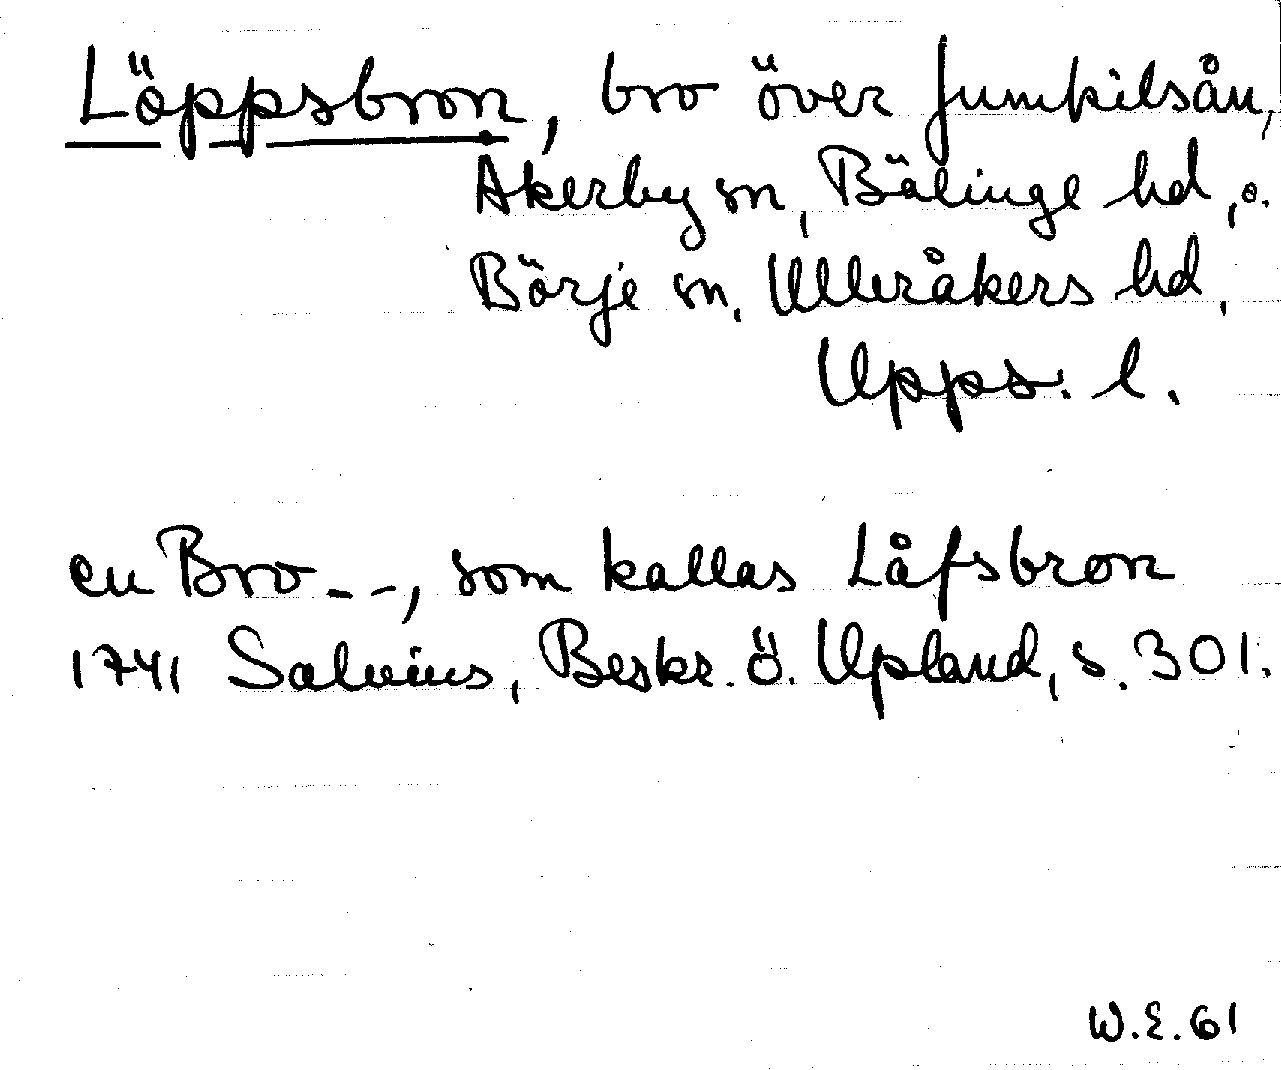 Löppsbron, bro över Jumkilsån,
Åkerby sn, Bälinge hd, o.
Börje sn, Ulleråkers hd,
Upps. l.
en Bro _ _, som kallas Låfsbron
1741 Salvius, Beskr. ö. Upland, s. 301.
W.E. 61